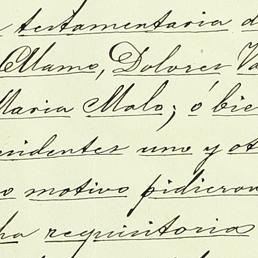 testamentaria d
Mamo, Dolores Va
Maria Malo; ó bie
sidentes uno y ot
o motivo pidieron
ha requisitorias